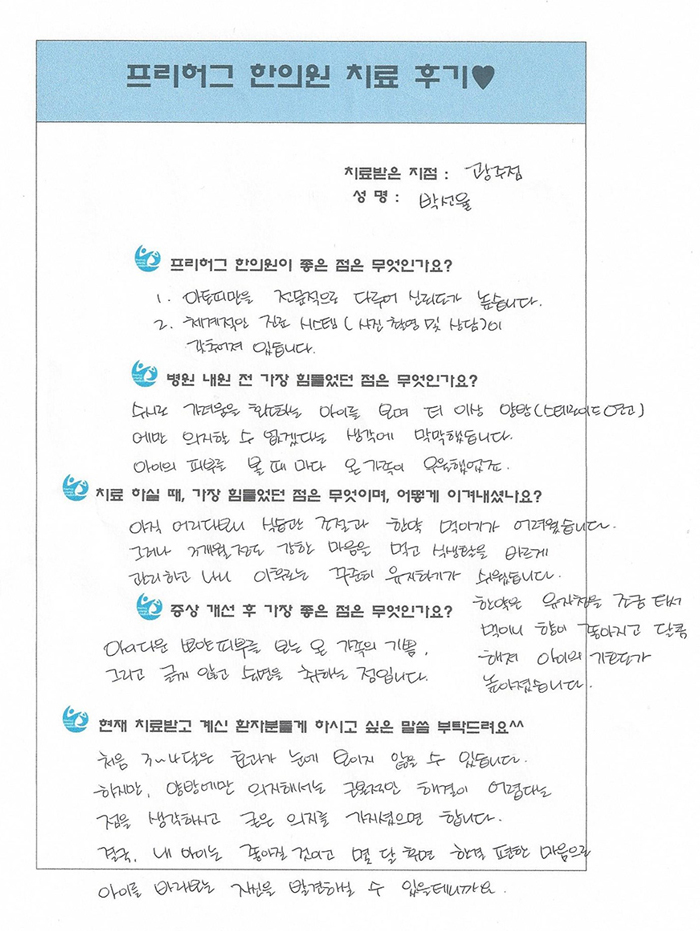 프리허그 한의원 치료 후기♥
치료받은 지점 : 광주점
성 명 : 박선율
프리허그 한의원이 좋은 점은 무엇인가요?
1. 아토피만을 전문적으로 다루어 신뢰도가 높습니다.
2. 체계적인 진료 시스템 (사진촬영 및 상담)이
갖추어져 있습니다.
병원 내원 전 가장 힘들었던 점은 무엇인가요?
수시로 가려움을 호소하는 아이를 보며 더 이상 양방(스테로이드 연고)
에만 의지할 수 없겠다는 생각에 막막했습니다.
아이의 피부를 볼 때 마다 온 가족이 우울했었죠.
치료 하실 때, 가장 힘들었던 점은 무엇이며, 어떻게 이겨내셨나요?
아직 어리다보니 식습관 조절과 한약 먹이기가 어려웠습니다.
그러나 3개월정도 강한 마음을 먹고 식생활을 바르게
관리하고 나니 이후로는 꾸준히 유지하기가 쉬웠습니다.
한약은 유자청을 조금 타서
먹이니 향이 좋아지고 달콤
해져 아이의 기호도가
높아졌습니다.
증상 개선 후 가장 좋은 점은 무엇인가요?
아이다운 뽀얀 피부를 보는 온 가족의 기쁨,
그리고 긁지 않고 숙면을 취하는 점입니다.
현재 치료받고 계신 환자분들게 하시고 싶은 말씀 부탁드려요^^
처음 3~4달은 효과가 눈에 보이지 않을 수 있습니다.
하지만, 양방에만 의지해서는 근본적인 해결이 어렵다는
점을 생각하시고 굳은 의지를 가지셨으면 합니다.
결국, 내 아이는 좋아질 것이고 몇 달 후면 한결 편한 마음으로
아이를 바라보는 자신을 발견하실 수 있을테니까요.